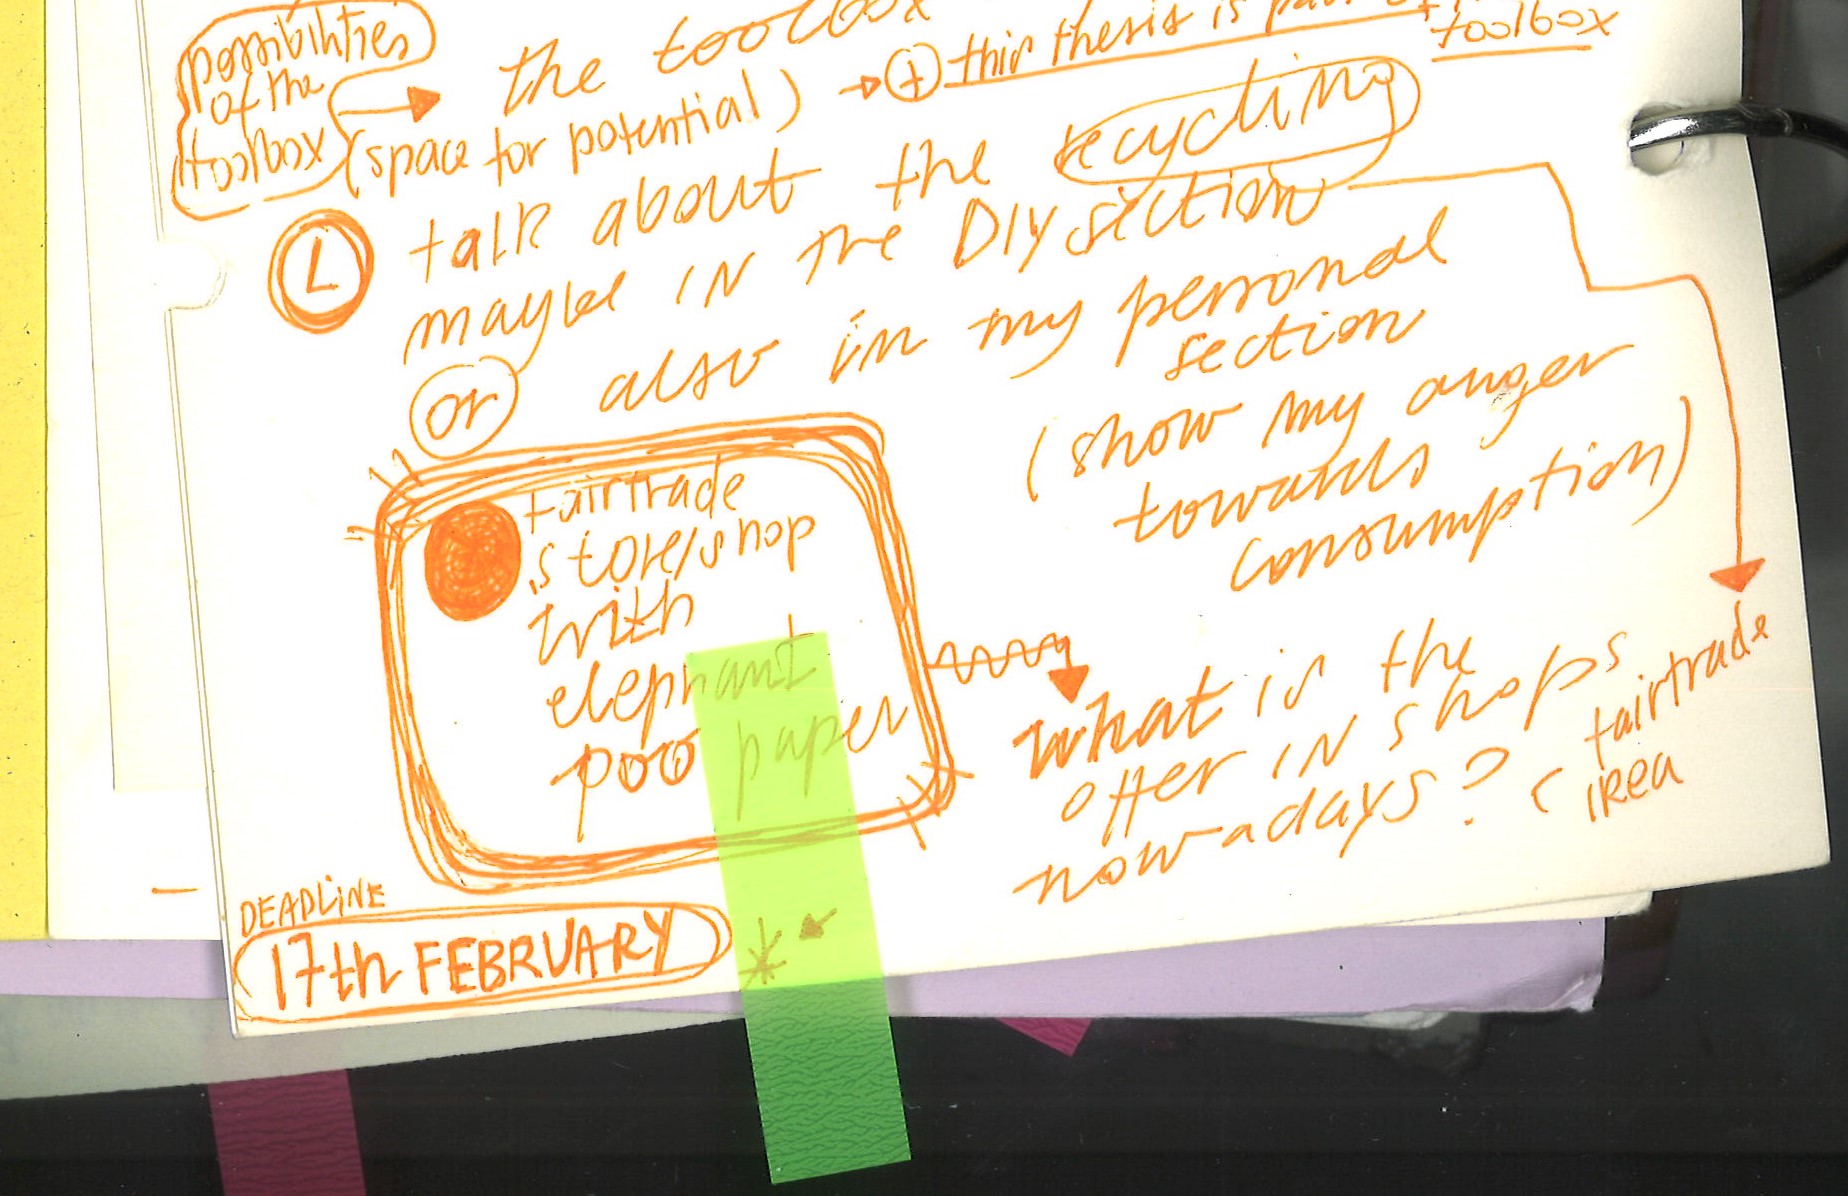 possibilities
of the
toolbox
the toolbox
(space for potential)
+ this thesis is part of
toolbox
L talk about the recycling
maybe in the DIY section
or also in my personal
section
(show my anger
towards
consumption)
fairtrade
store/shop
with
elephant
poo paper
What is the
offer in shops
nowadays? (
fairtrade
IKEA
DEADLINE
17th FEBRUARY